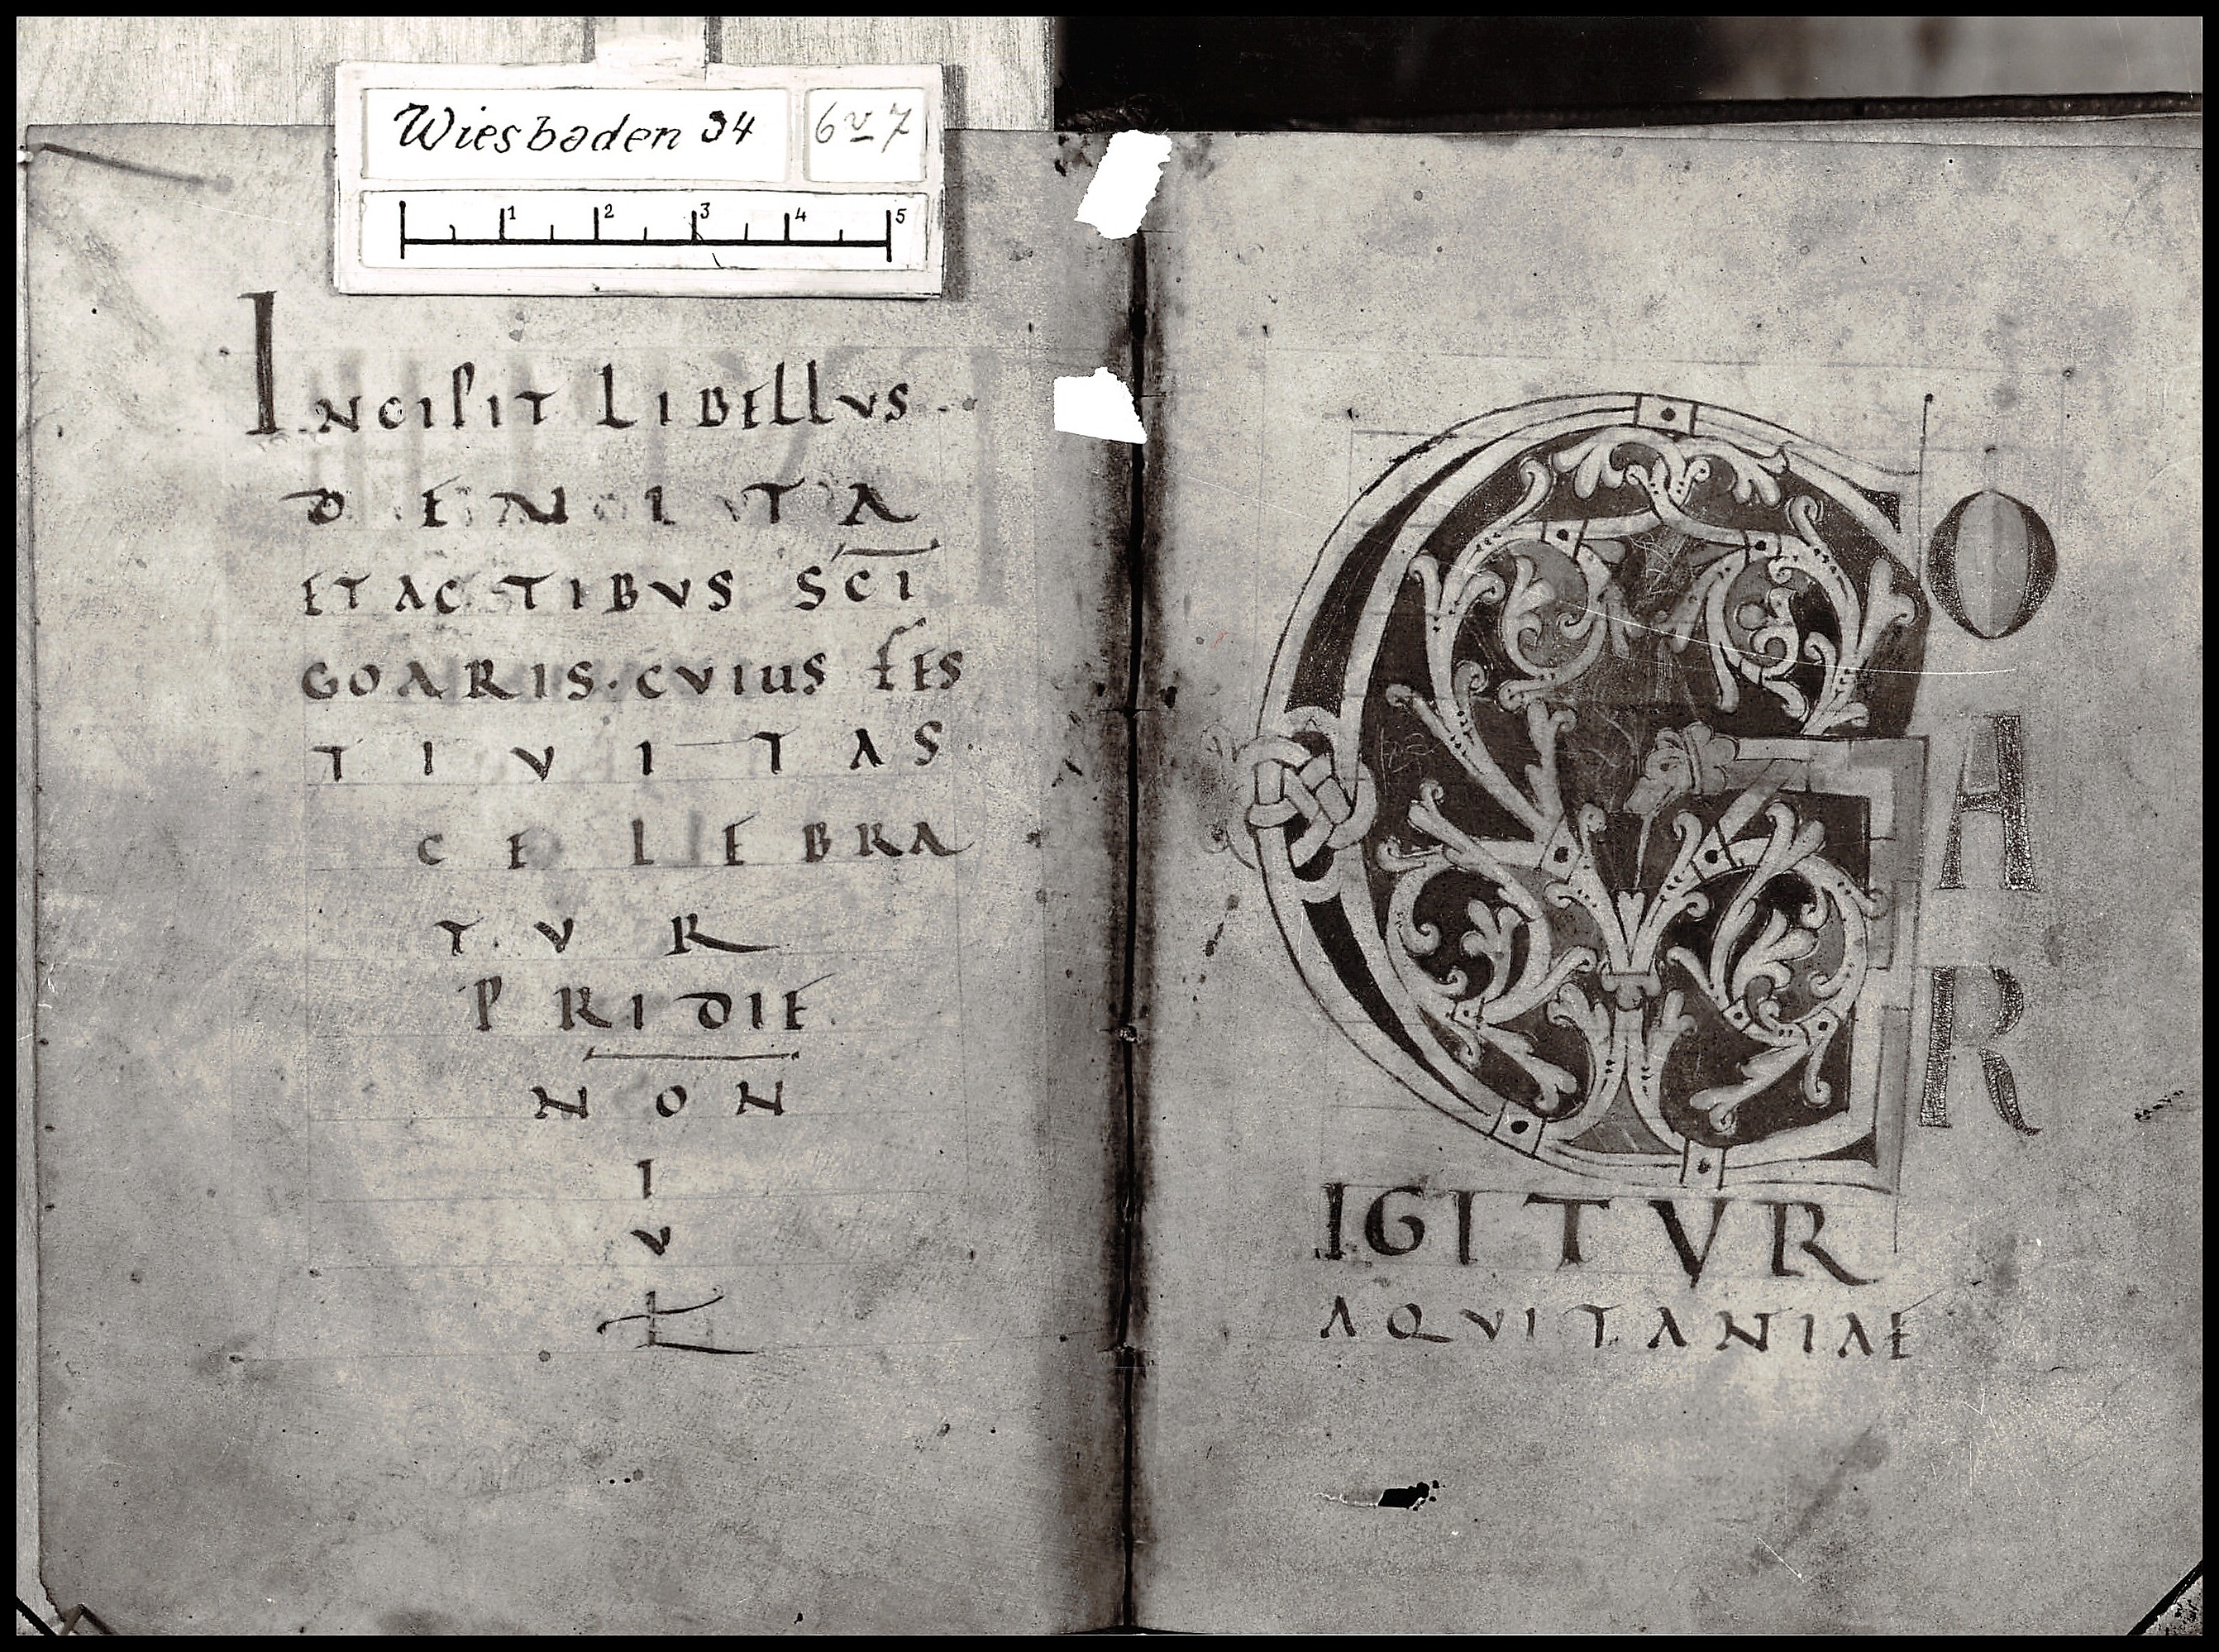 Wiesbaden 34
6v 7
1 2 3 4 5
INCIPIT LIBELLVS
DE VITA
ET ACTIBVS SCI
GOARIS. CVIUS FES
TIVITAS
CELEBRA
TVR
PRIDIE
NON
I
V
L
G
O
A
R
IGITVR
AQVITANIAE